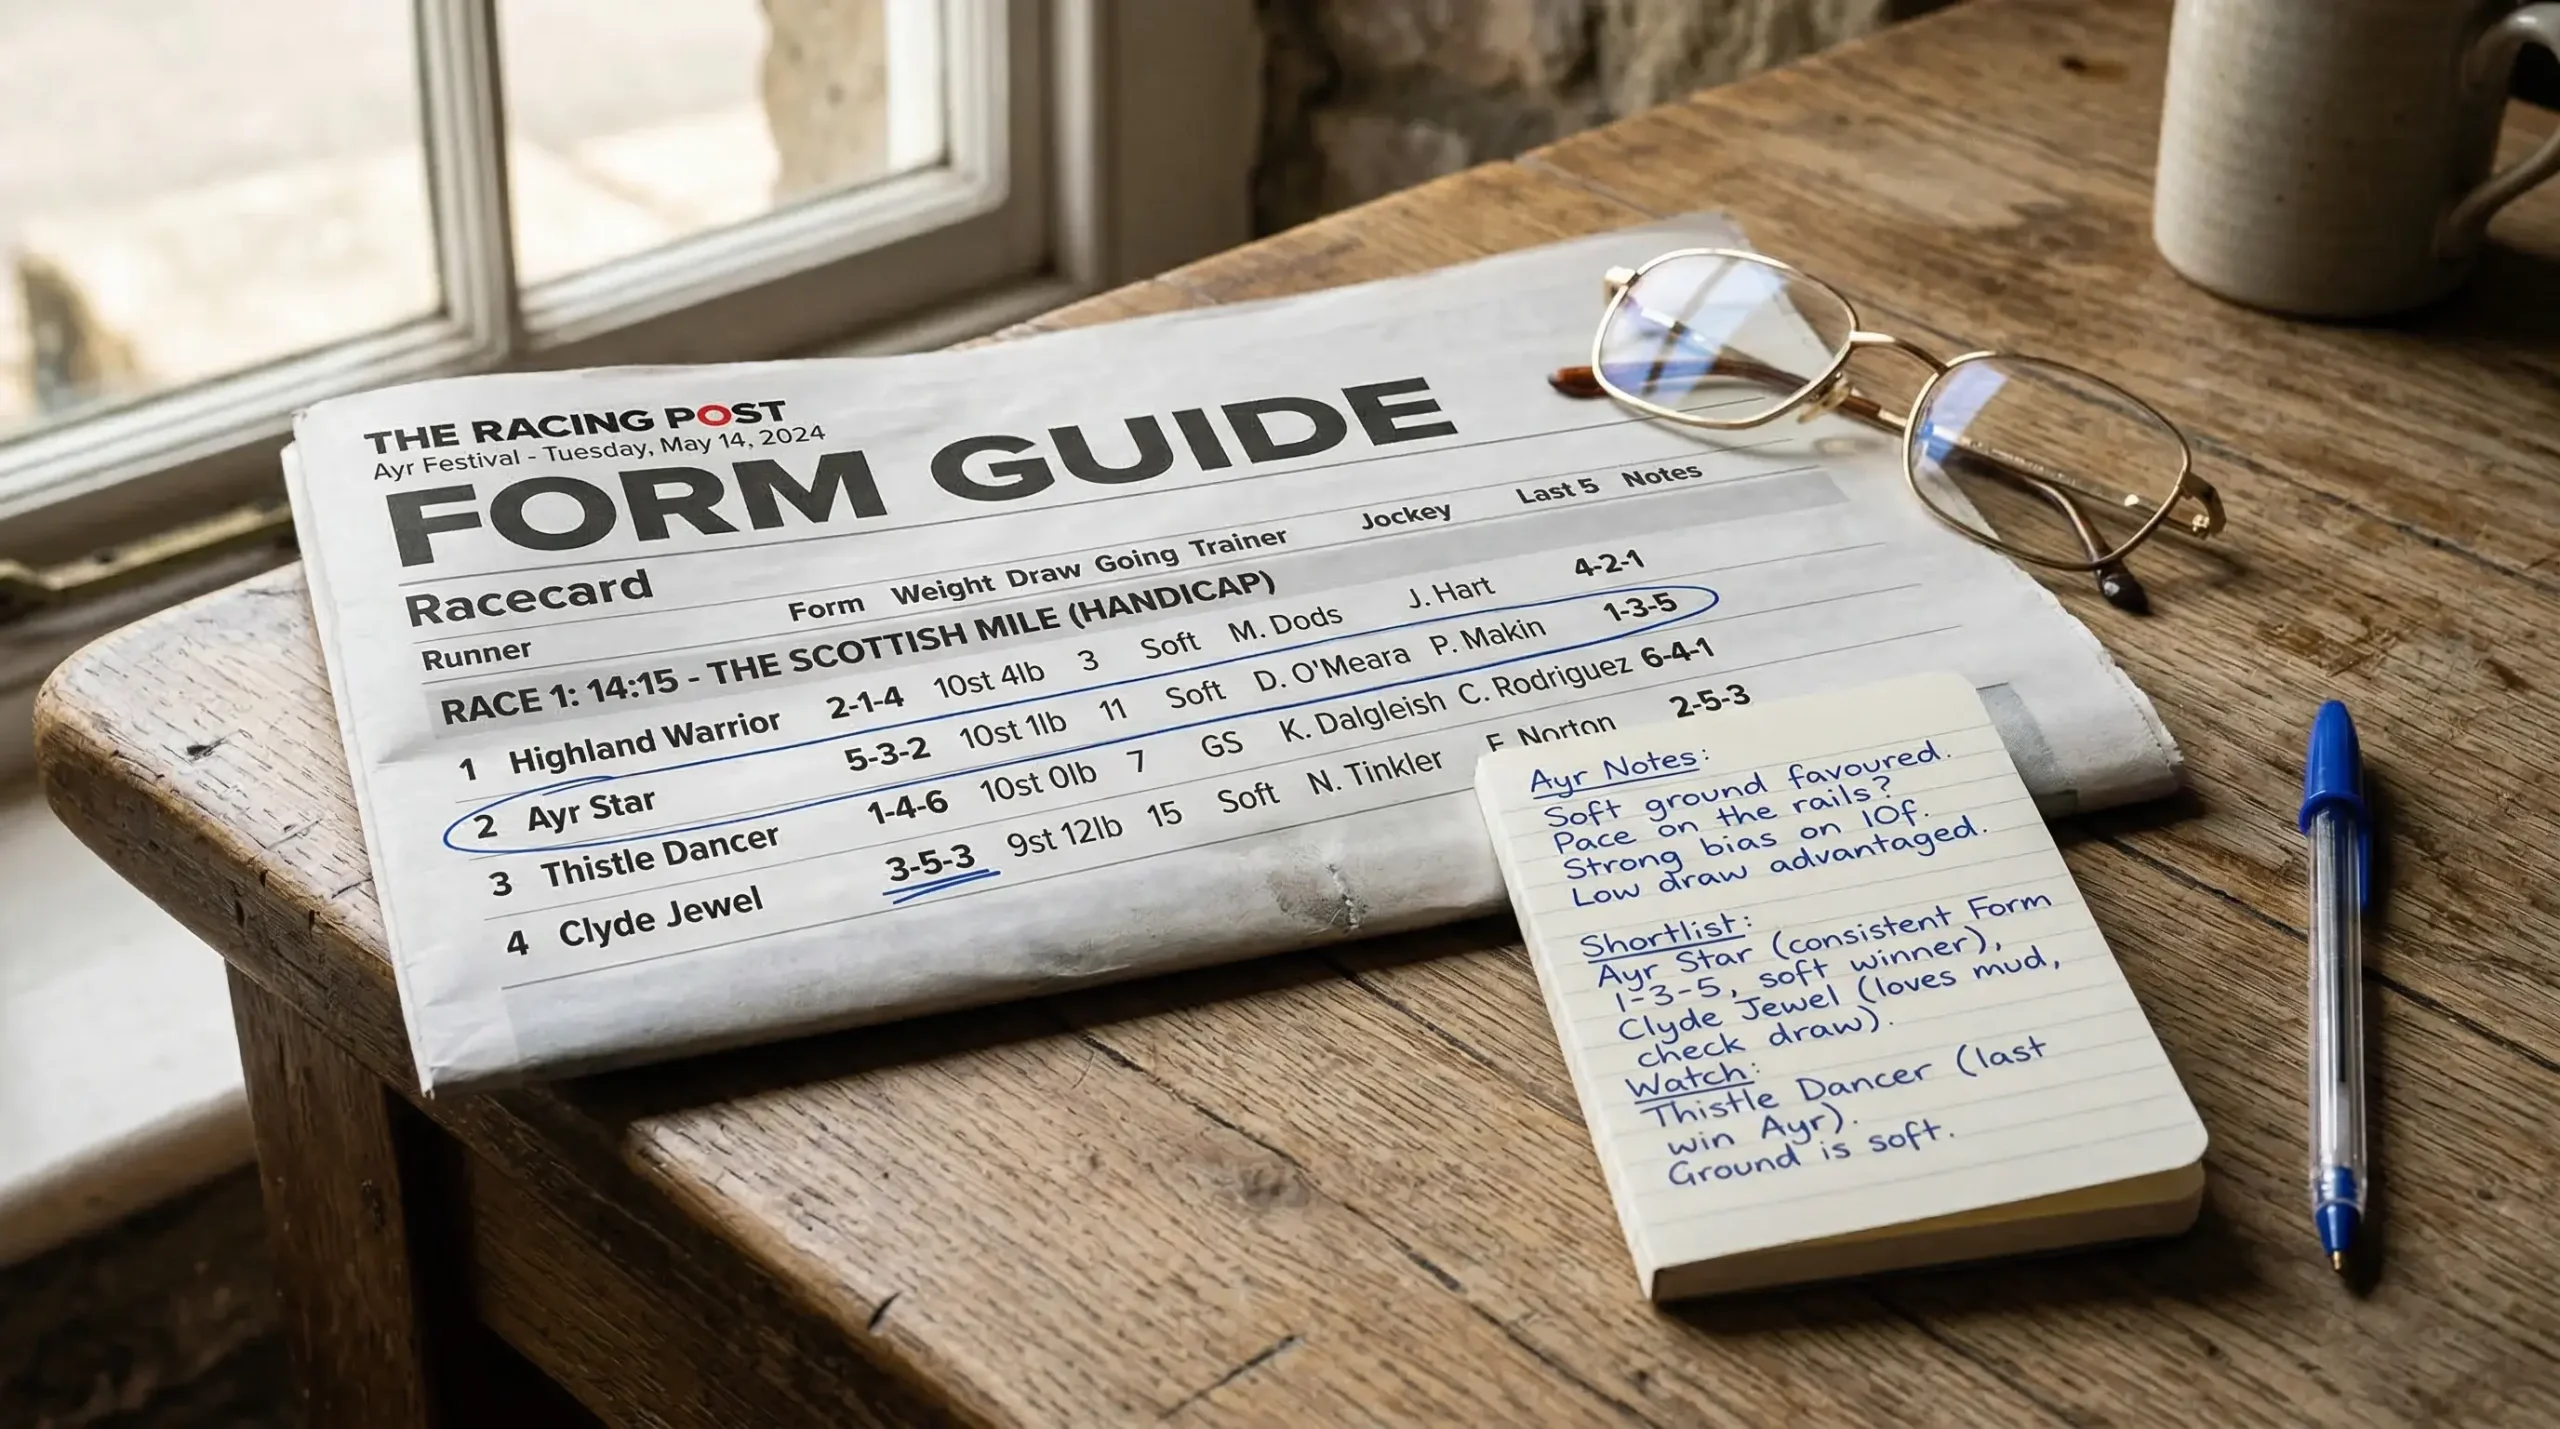 THE RACING POST
Ayr Festival - Tuesday, May 14, 2024
FORM GUIDE
Racecard
Runner Form Weight Draw Going Trainer Jockey Last 5 Notes
RACE 1: 14:15 - THE SCOTTISH MILE (HANDICAP)
1 Highland Warrior 2-1-4 10st 4lb 3 Soft M. Dods J. Hart 4-2-1
2 Ayr Star 5-3-2 10st 1lb 11 Soft D. O'Meara P. Makin 1-3-5
3 Thistle Dancer 1-4-6 10st 0lb 7 GS K. Dalgleish C. Rodriguez 6-4-1
4 Clyde Jewel 3-5-3 9st 12lb 15 Soft N. Tinkler Norton 2-5-3
Ayr Notes:
Soft ground favoured.
Pace on the rails?
Strong bias on 10f.
Low draw advantaged.
Shortlist:
Ayr Star (consistent Form
1-3-5, soft winner),
Clyde Jewel (loves mud,
check draw).
Watch:
Thistle Dancer (last
win Ayr).
Ground is soft.